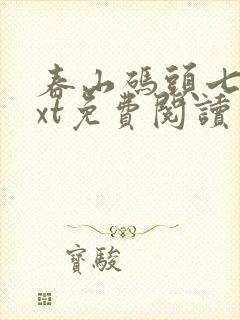 春山碼頭七
xt免費閱讀
寶駿